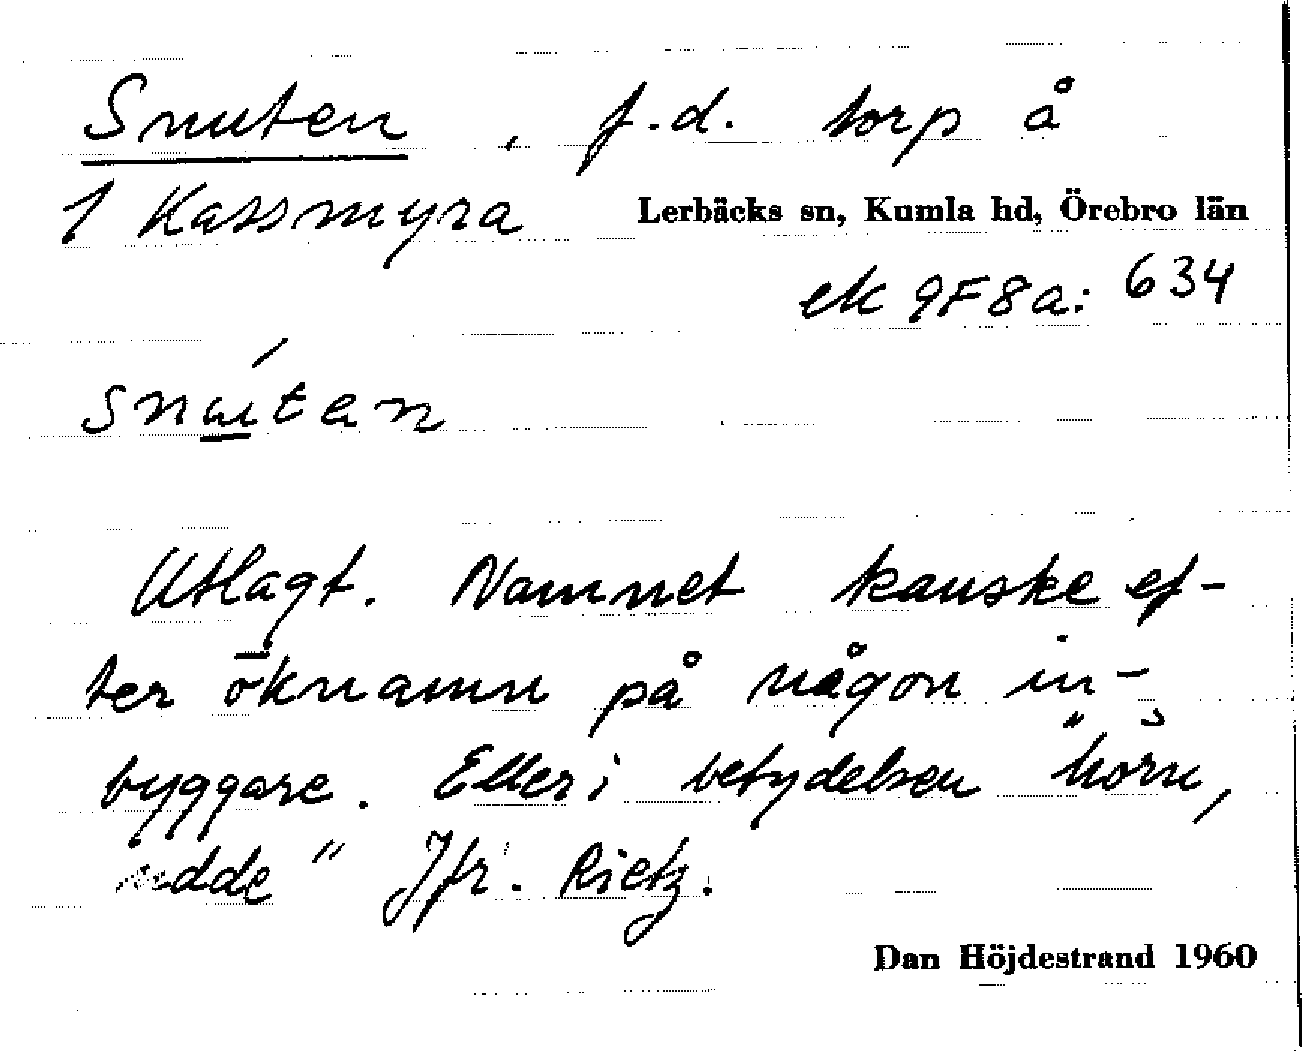 Snuten, f.d. torp å
1 Kassmyra Lerbäcks sn, Kumla hd, Örebro län
ek 9F8a: 634
snú̲tan
Utlagt. Namnet kanske ef-
ter öknamn på någon in-
byggare. Eller i betydelsen "hörn,
udde" Jfr. Rietz.
Dan Höjdestrand 1960